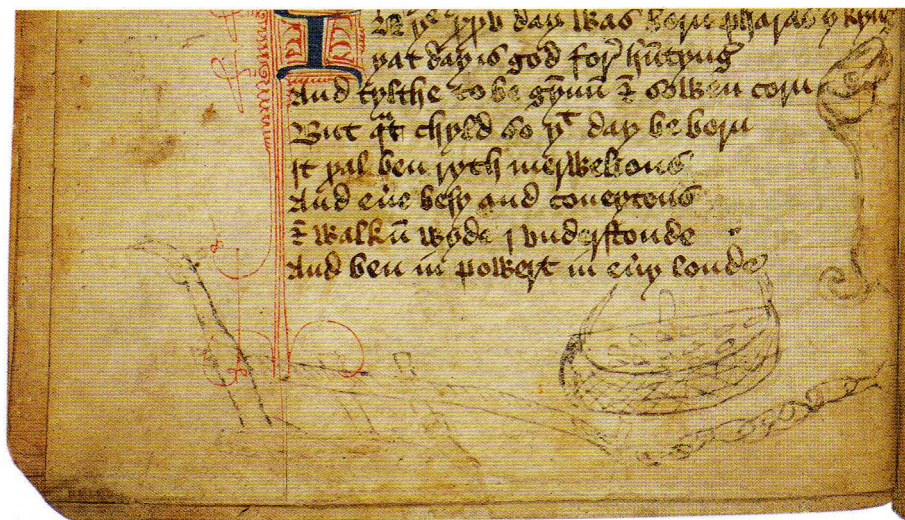 In yᵉ xxv day was born pharao yᵉ kyng
yat day is god for hūtyng
And tylthe to be gȳnn & sowen corn
But qᵃt chyld so yᵗ day be born
it xal ben ryth merwelous
And eue besy and coueytous
& walkn̄ wyde i vnderstonde
And ben in powert in euy londe